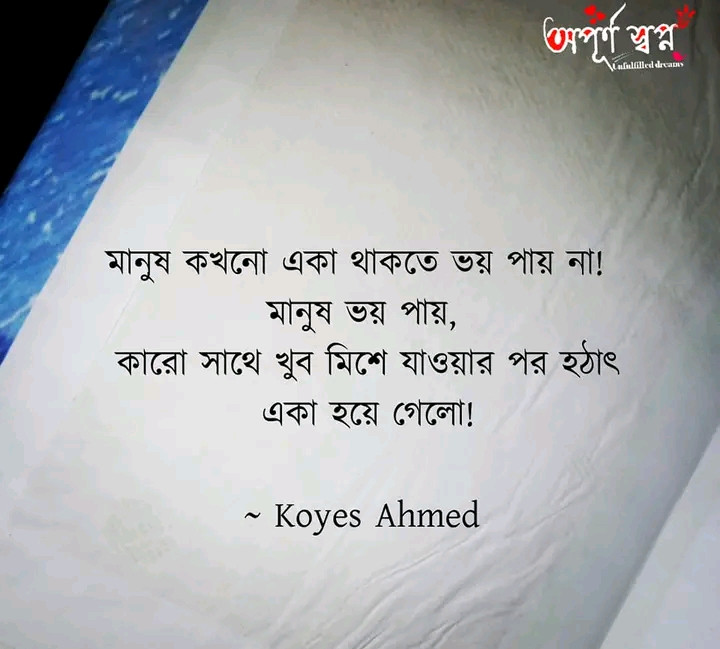 অপূর্ণ স্বপ্ন
Unfulfilled dreams
মানুষ কখনো একা থাকতে ভয় পায় না!
মানুষ ভয় পায়,
কারো সাথে খুব মিশে যাওয়ার পর হঠাৎ
একা হয়ে গেলো!
~ Koyes Ahmed